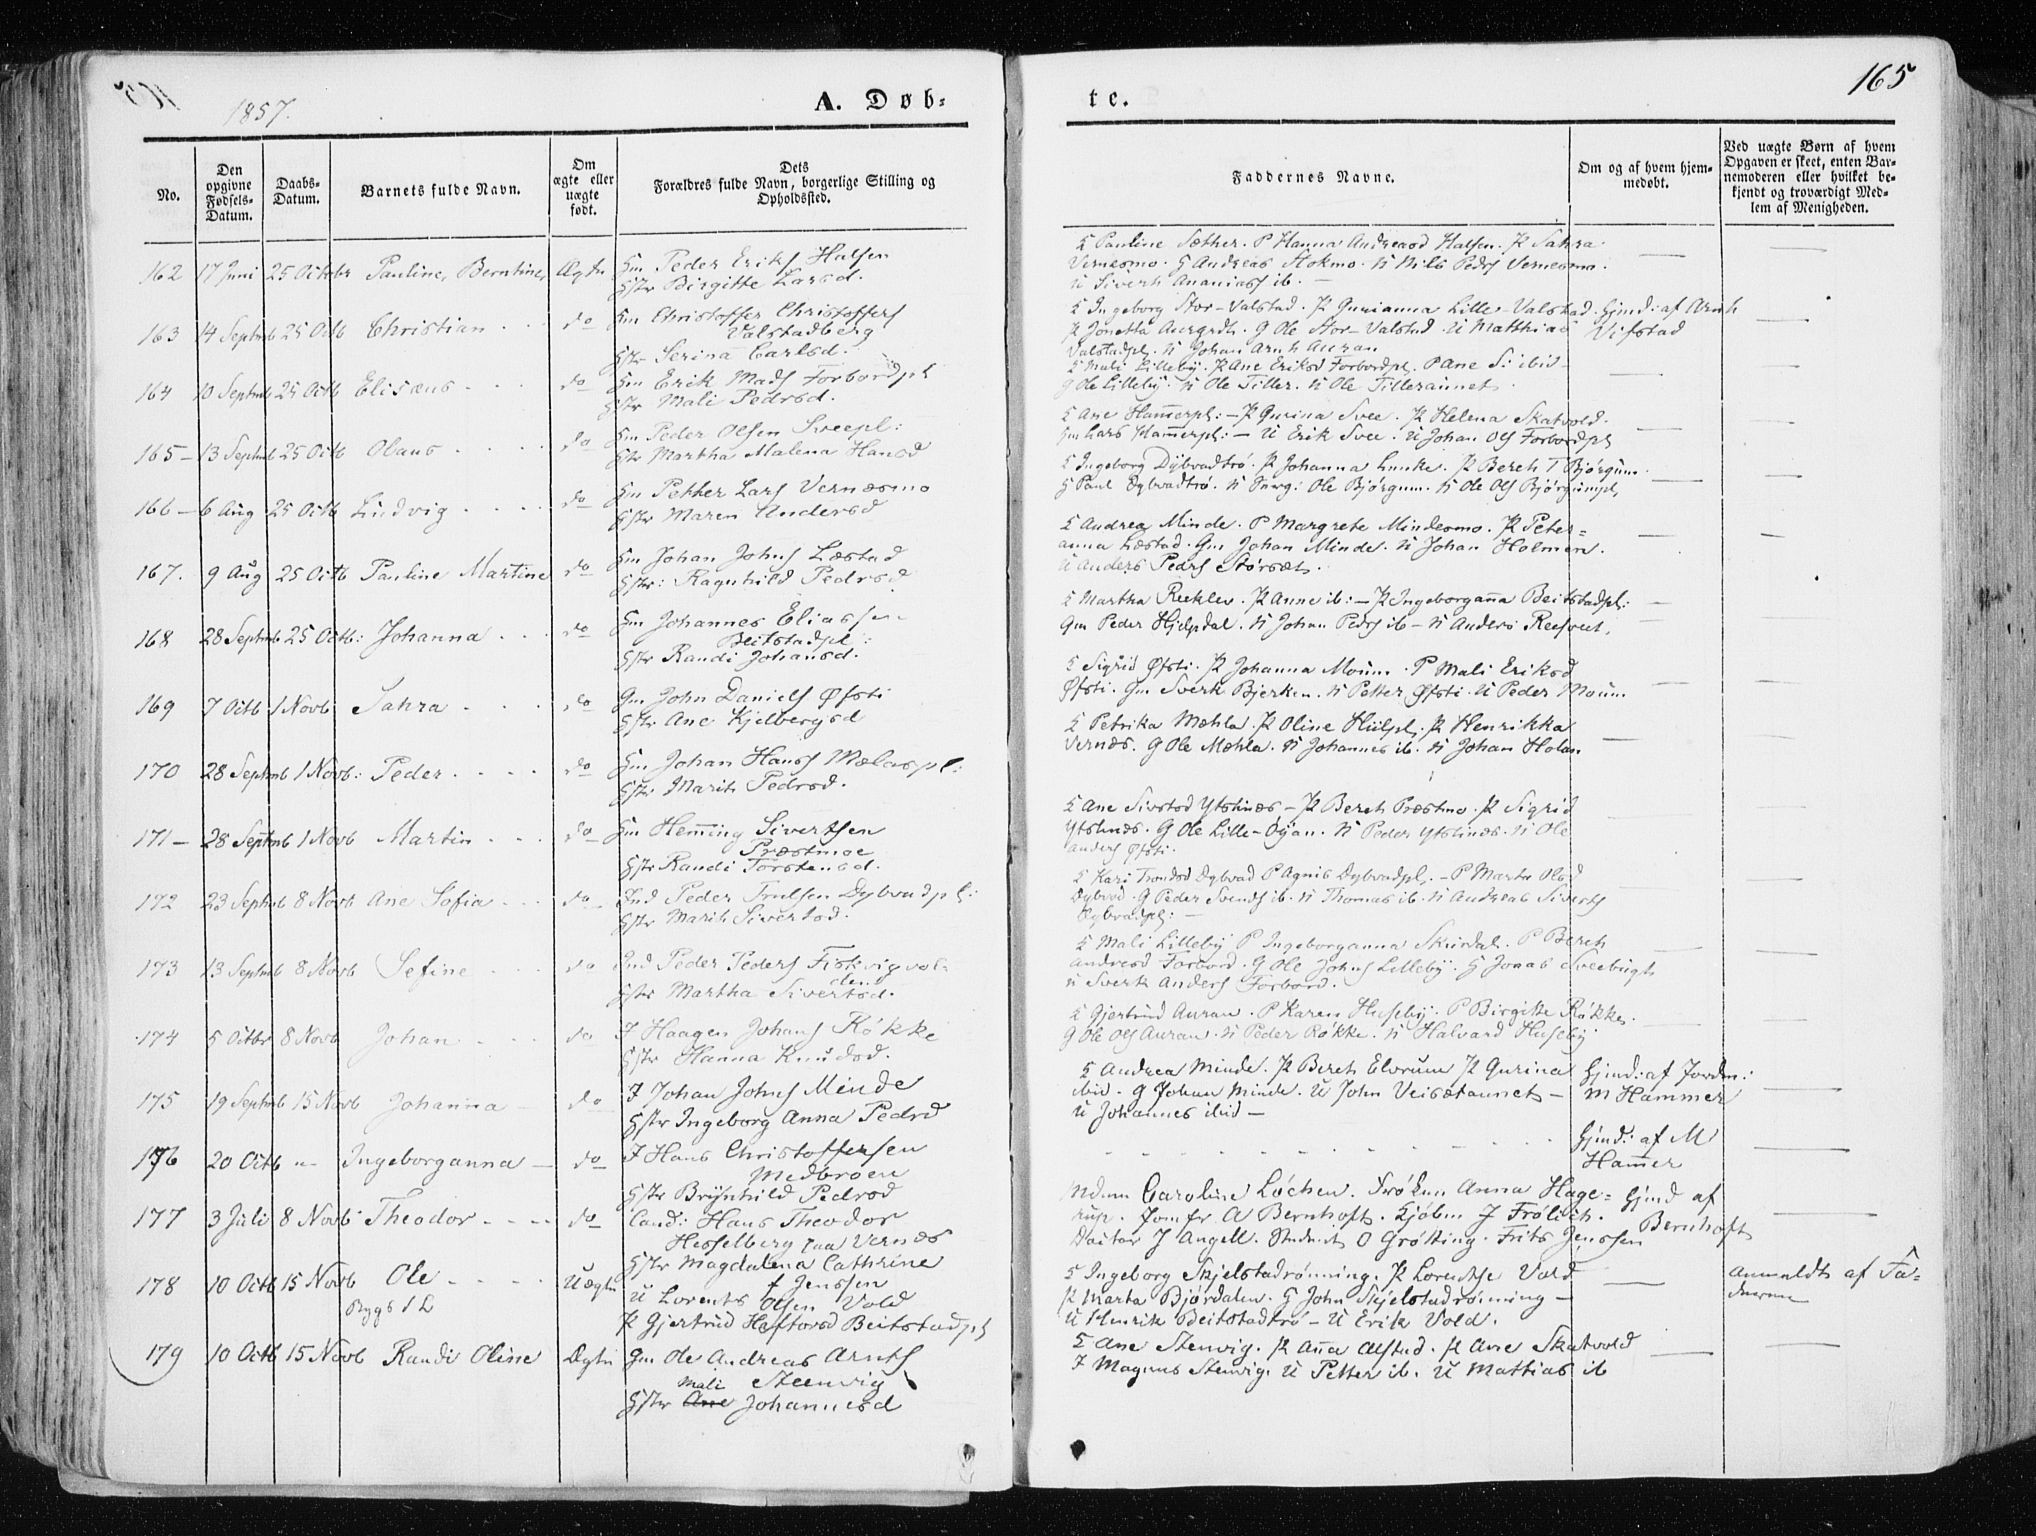 165
1857.
A. Døb-
te.
No.
Den opgivne Fødsels-Datum.
Daabs-Datum.
Barnets fulde Navn.
Om ægte eller uægte født.
Dets Forældres fulde Navn, borgerlige Stilling og Opholdssted.
Faddernes Navne.
Om og af hvem hjem-medøbt.
Ved uægte Børn af hvem Opgaven er skeet, enten Bar-nemoderen eller hvilket be-kjendt og troværdigt Med-lem af Menigheden.
162 17 Juni 25 Octobr Pauline Berntine Ægte Peder Eriks Halsen
Birgitte Larsd.
K Pauline Sæther. P Hanna Andreasd Halsen. P Sahra
Vernesmo. G Andreas Stokmo. U Nils Peds Vernesmo.
U Siverh Ananiass ib.
163 14 Septmb 25 Octb Christian do Christoffer Christoffers
Valstadberg
Serina Carlsd.
K Ingeborg Stor-Valstad. P Gurianna Lille-Valstad. Hjemd: af Arnh
P Jonetta Auegrdh. G Ole Stor-Valstad. U Matthias Vifstad
Valstadpl. U Johan Arnh Auran
164 10 Septmb 25 Octb Elisæus do Erik Mads Forbordpl
Mali Pedrsd.
K Mali Lilleby. P Ane Eriksd Forbordpl. P Ane S: ibid
G Ole Lilleby. U Ole Tiller. U Ole Tilleraunet.
165 13 Septmb 25 Octb Olaus do Peder Olsen Sveepl:
Martha Malena Hansd
K Ane Hammerpl: P Gurina Svee. P Helena Skatvold.
Lars Hammerpl: U Erik Svee. U Johan Ols Forbordpl
166 6 Aug 25 Octb Ludvig do Petter Lars Vernæsmo
Maren Andersd
K Ingeborg Dybvadtrø. P Johanna Lunke. P Bereh T Bjørgum.
G Paul Dybvadtrø. U Ole Bjørgum. U Ole Ols Bjørgumpl
167. 9 Aug 25 Octb Pauline Martine do Johan Johns Læstad
Ragnhild Pedrsd
K Andrea Minde. P Margrete Mindesmo. P Peter-
anna Læstad. Gm Johan Minde. U Johan Holmen.
U Anders Peds Størsæt.
168 28 Septmb 25 Octb: Johanna do Johannes Eliassen
Beitstadpl:
Randi Johansd.
K Martha Reeklev. P Anne ib: P Ingeborganna Beitstadpl:
Gm Peder Hjelpdal. U Johan Peds ib U Anders
169 7 Octb 1 Novb Sahra do Gm John Daniels Øfsti
Ane Kjelbergsd
K Sigrid Øfsti. P Johanna Moum. P Mali Eriksd
Øfsti. Gm Sverk Bjerken. U Petter Øfsti. U Peder Moum
170 28 Septmb 1 Novb: Peder do Johan Hans Mælaspl:
Marith Pedrsd.
K Petrika Mæhla. P Oline Hiilpl. P Henrikka
Vernæs. G Ole Mæhla. U Johannes ib. U Johan Holan
171 28 Septmb 1 Novb Martin do Hemming Sivertsen
Præstmoe
Randi Torstensd.
K Ane Sivetsd Ytstnæs P Bereh Præstmo. P Sigrid
Ytstnæs. G Ole Lille-Øyan. U Peder Ytstnæs. U Ole
Anders Øfsti.
172 23 Septmb 8 Novb Ane Sofia do Ind Peder Trulsen Dybvadpl:
Marith Sivertsd.
K Kari Trondsd Dybvad P Agnis Dybvadpl. P Marte Olsd
Dybvad. G Peder Svends ib. U Thomas ib. U Andreas Siverts
Dybvadpl:
173 13 Septmb 8 Novb Sefine do Ind Peder Peders Fiskvigvol-
den
Martha Sivertsd.
K Mali Lilleby P Ingeborganna Skirdal. P Bereh
Andresd Forbord. G Ole Johns Lilleby. G Jonas Sveebugt
U Sverk Anders Forbord.
174 5 Octbr 8 Novb Johan do I Haagen Johans Røkke
Hanna Knudsd.
K Gjertrud Auran. P Karen Huseby. P Birgitte Røkke.
G Ole Ols Auran. U Peder Røkke. U Halvard Huseby
175 19 Septmb 15 Novb Johanna do I Johan Johns Minde
Ingeborg Anna Pedrsd
K Andrea Minde. P Bereh Elvrum P Gurina Hjemd: af Jordm:
ibid. G Johan Minde. U John Veisætaunet M Hammer
U Johannes ibid
176 20 Octb Ingeborganna do I Hans Christoffersen
Medbroen
Brynhild Pedrsd
Hjemd: af M
Hammer
177 3 Juli 8 Novb Theodor do Cand: Hans Theodor
Hesselberg paa Vernæs
Magdalena Cathrine
f Jenssen
Mdm Caroline Løchen. Frøken Anna Hage- Hjemd af
rup. Jomfr A Bernhoft. Kjøbm J Frølich. Bernhoft
Doctor J Angell. Student O Grøtting. Frits Jenssen
178 10 Octb 15 Novb Ole Uægte U Lorents Olsen Vold
P Gjertrud Haftorsd Beitstadpl
K Ingeborg Skjelstadrønning. P Lorentse Vold
P Marta Bjørdalen. G John Skjelstadrønning
U Henrik Beitstadtrø U Erik Vold.
anmeldt af Fa-
deren
179 10 Octb 15 Novb Randi Oline Ægte Gm Ole Andreas Arnts
Steenvig
Mali
Ane Johannesd
K Ane Stenvig. P Anna Alstad. P Ane Skatvold
I Magnus Stenvig. U Petter ib. U Mattias ib